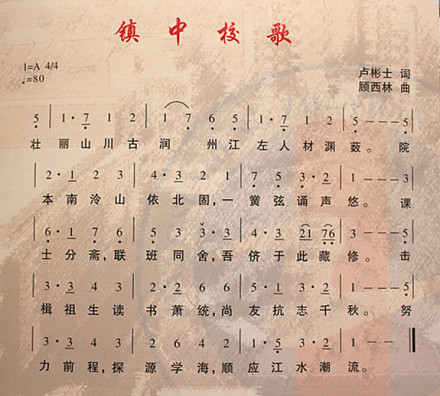 镇中校歌
1=A 4/4
♩=80
卢彬士 词
顾西林 曲
5 | 1·7 1 2 | 1 7 6 5 | 1 2·7 1 | 5 - - - 5
壮丽山川古润州江左人材渊薮。院
2·1 2 3 | 4·3 2 1 | 7 5 3·2 | 1 - - - 3
本南泠山依北固,一黉弦诵声悠。课
6·1 7 5 | 5 3 3·3 | 4·3 21 76 | 5 - - - 5
士分斋,联班同舍,吾侪于此藏修。击
3·3 4 5 | 2·2 6 6 | 5·4 3 2 | 1 - - - 5
楫祖生读书萧统,尚友抗志千秋。努
3·3 4 5 | 2 6 4 2 | 1·5 3 2 | 1 - - -
力前程,探源学海,顺应江水潮流。